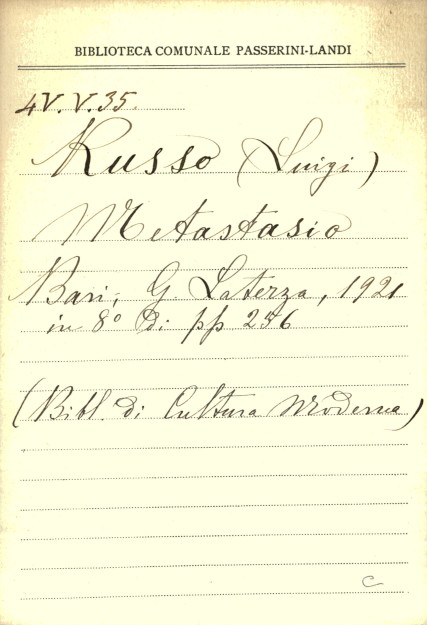 BIBLIOTECA COMUNALE PASSERINI-LANDI
4V. V. 35.
Russo (Luigi)
Metastasio
Bari, G. Laterza, 1921
in 8° di pp 256
(Bibl. di Cultura Moderna)
C